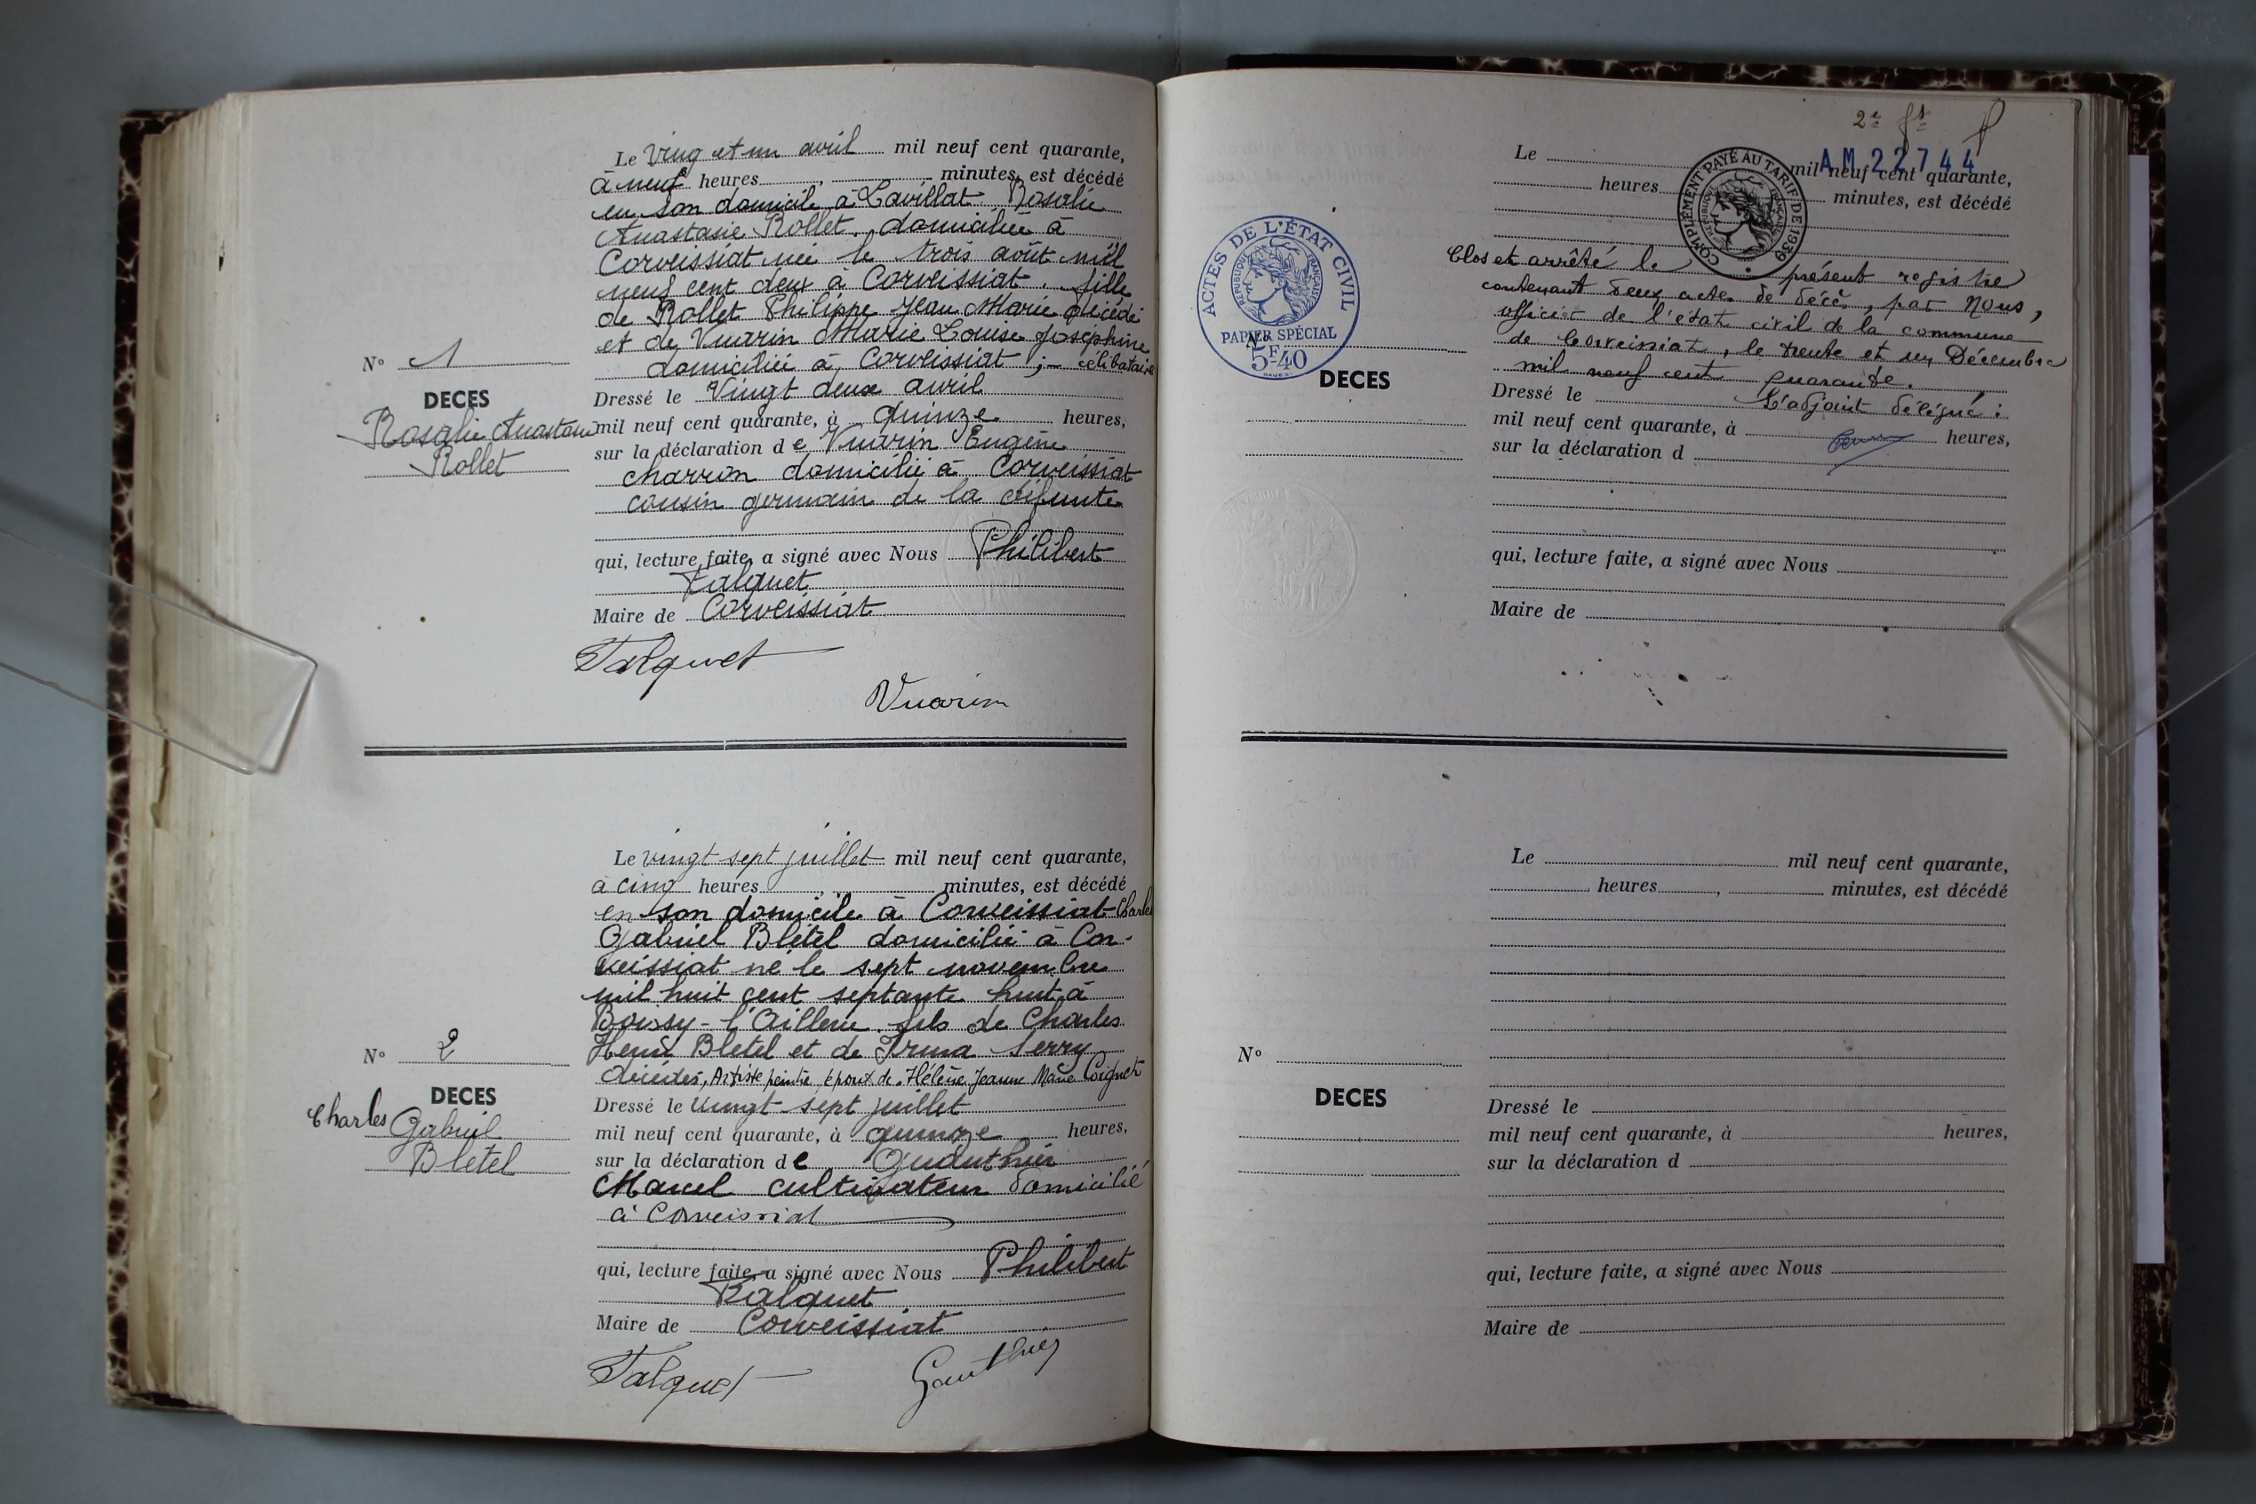 Le Ving et un avril mil neuf cent quarante,
à neuf heures, minutes, est décédé
en son domicile à Lavillat Rosalie
Anastasie Rollet domiciliée à
Corveissiat née le trois août mil
neuf cent deux à Corveissiat. fille
de Rollet Philippe Jean Marie décédé
et de Vuarin Marie Louise Joséphine
domiciliée à Corveissiat ;- célibataire
N° 1
DECES
Rosalie Anastasie
Rollet
Dressé le Vingt deux avril
mil neuf cent quarante, à quinze heures,
sur la déclaration de Vuarin Eugène
charron domicilié à Corveissiat
cousin germain de la défunte
qui, lecture faite, a signé avec Nous Philibert
Falquet
Maire de Corveissiat
Falquet
Vuarin
Le vingt sept juillet mil neuf cent quarante,
à cinq heures, minutes, est décédé
en son domicile à Corveissiat Charles
Gabriel Blétel domicilié à Cor-
veissiat né le sept novembre
mil huit cent septante huit à
Boissy-l'Aillerie fils de Charles
Henri Bletel et de Irma Serry
décédés, Artiste peintre époux de Hélène Jeanne Marie Coignet
N° 2
DECES
Charles Gabriel
Bletel
Dressé le vingt sept juillet
mil neuf cent quarante, à quinze heures,
sur la déclaration de Gauthier
Marcel cultivateur domicilié
à Corveissiat
qui, lecture faite, a signé avec Nous Philibert
Falquet
Maire de Corveissiat
Falquet
Gauthier
2e
AM 22744
Le mil neuf cent quarante,
heures minutes, est décédé
COMPLÉMENT PAYÉ AU TARIF DE 1939
RÉPUBLIQUE FRANÇAISE
ACTES DE L'ÉTAT CIVIL
RÉPUBLIQUE FRANÇAISE
PAPIER SPÉCIAL
5F40
Clos et arrêté le présent registre
contenant deux actes de décès, par Nous,
officier de l'état civil de la commune
de Corveissiat, le trente et un Décembre
mil neuf cent quarante.
L'adjoint délégué :
N°
DECES
Dressé le
mil neuf cent quarante, à heures,
sur la déclaration d
qui, lecture faite, a signé avec Nous
Maire de
Le mil neuf cent quarante,
heures, minutes, est décédé
N°
DECES
Dressé le
mil neuf cent quarante, à heures,
sur la déclaration d
qui, lecture faite, a signé avec Nous
Maire de